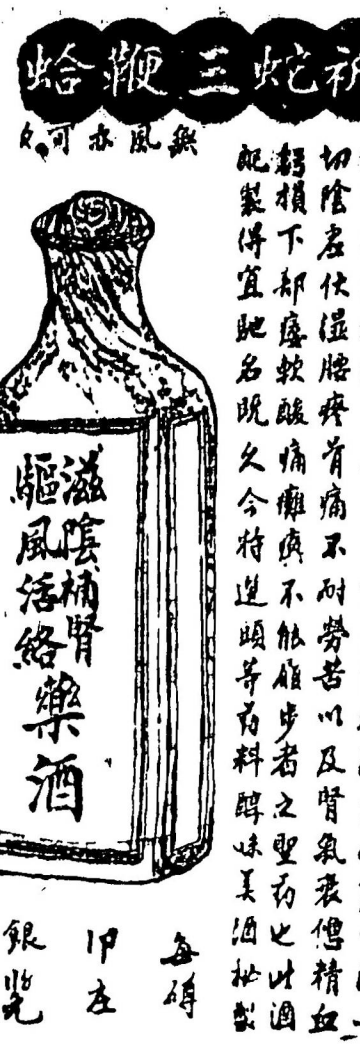 蛤鞭三蛇
無風亦可
切陰虛伏濕腰疼骨痛不耐勞苦以及腎氣衰憊精血
虧損下部痿軟酸痛癱瘓不能履步者之聖药也此酒
配製得宜馳名既久今特選頭等药料醇味美酒秘製
滋陰補腎
驅風活絡
藥酒
每磚
庄
銀